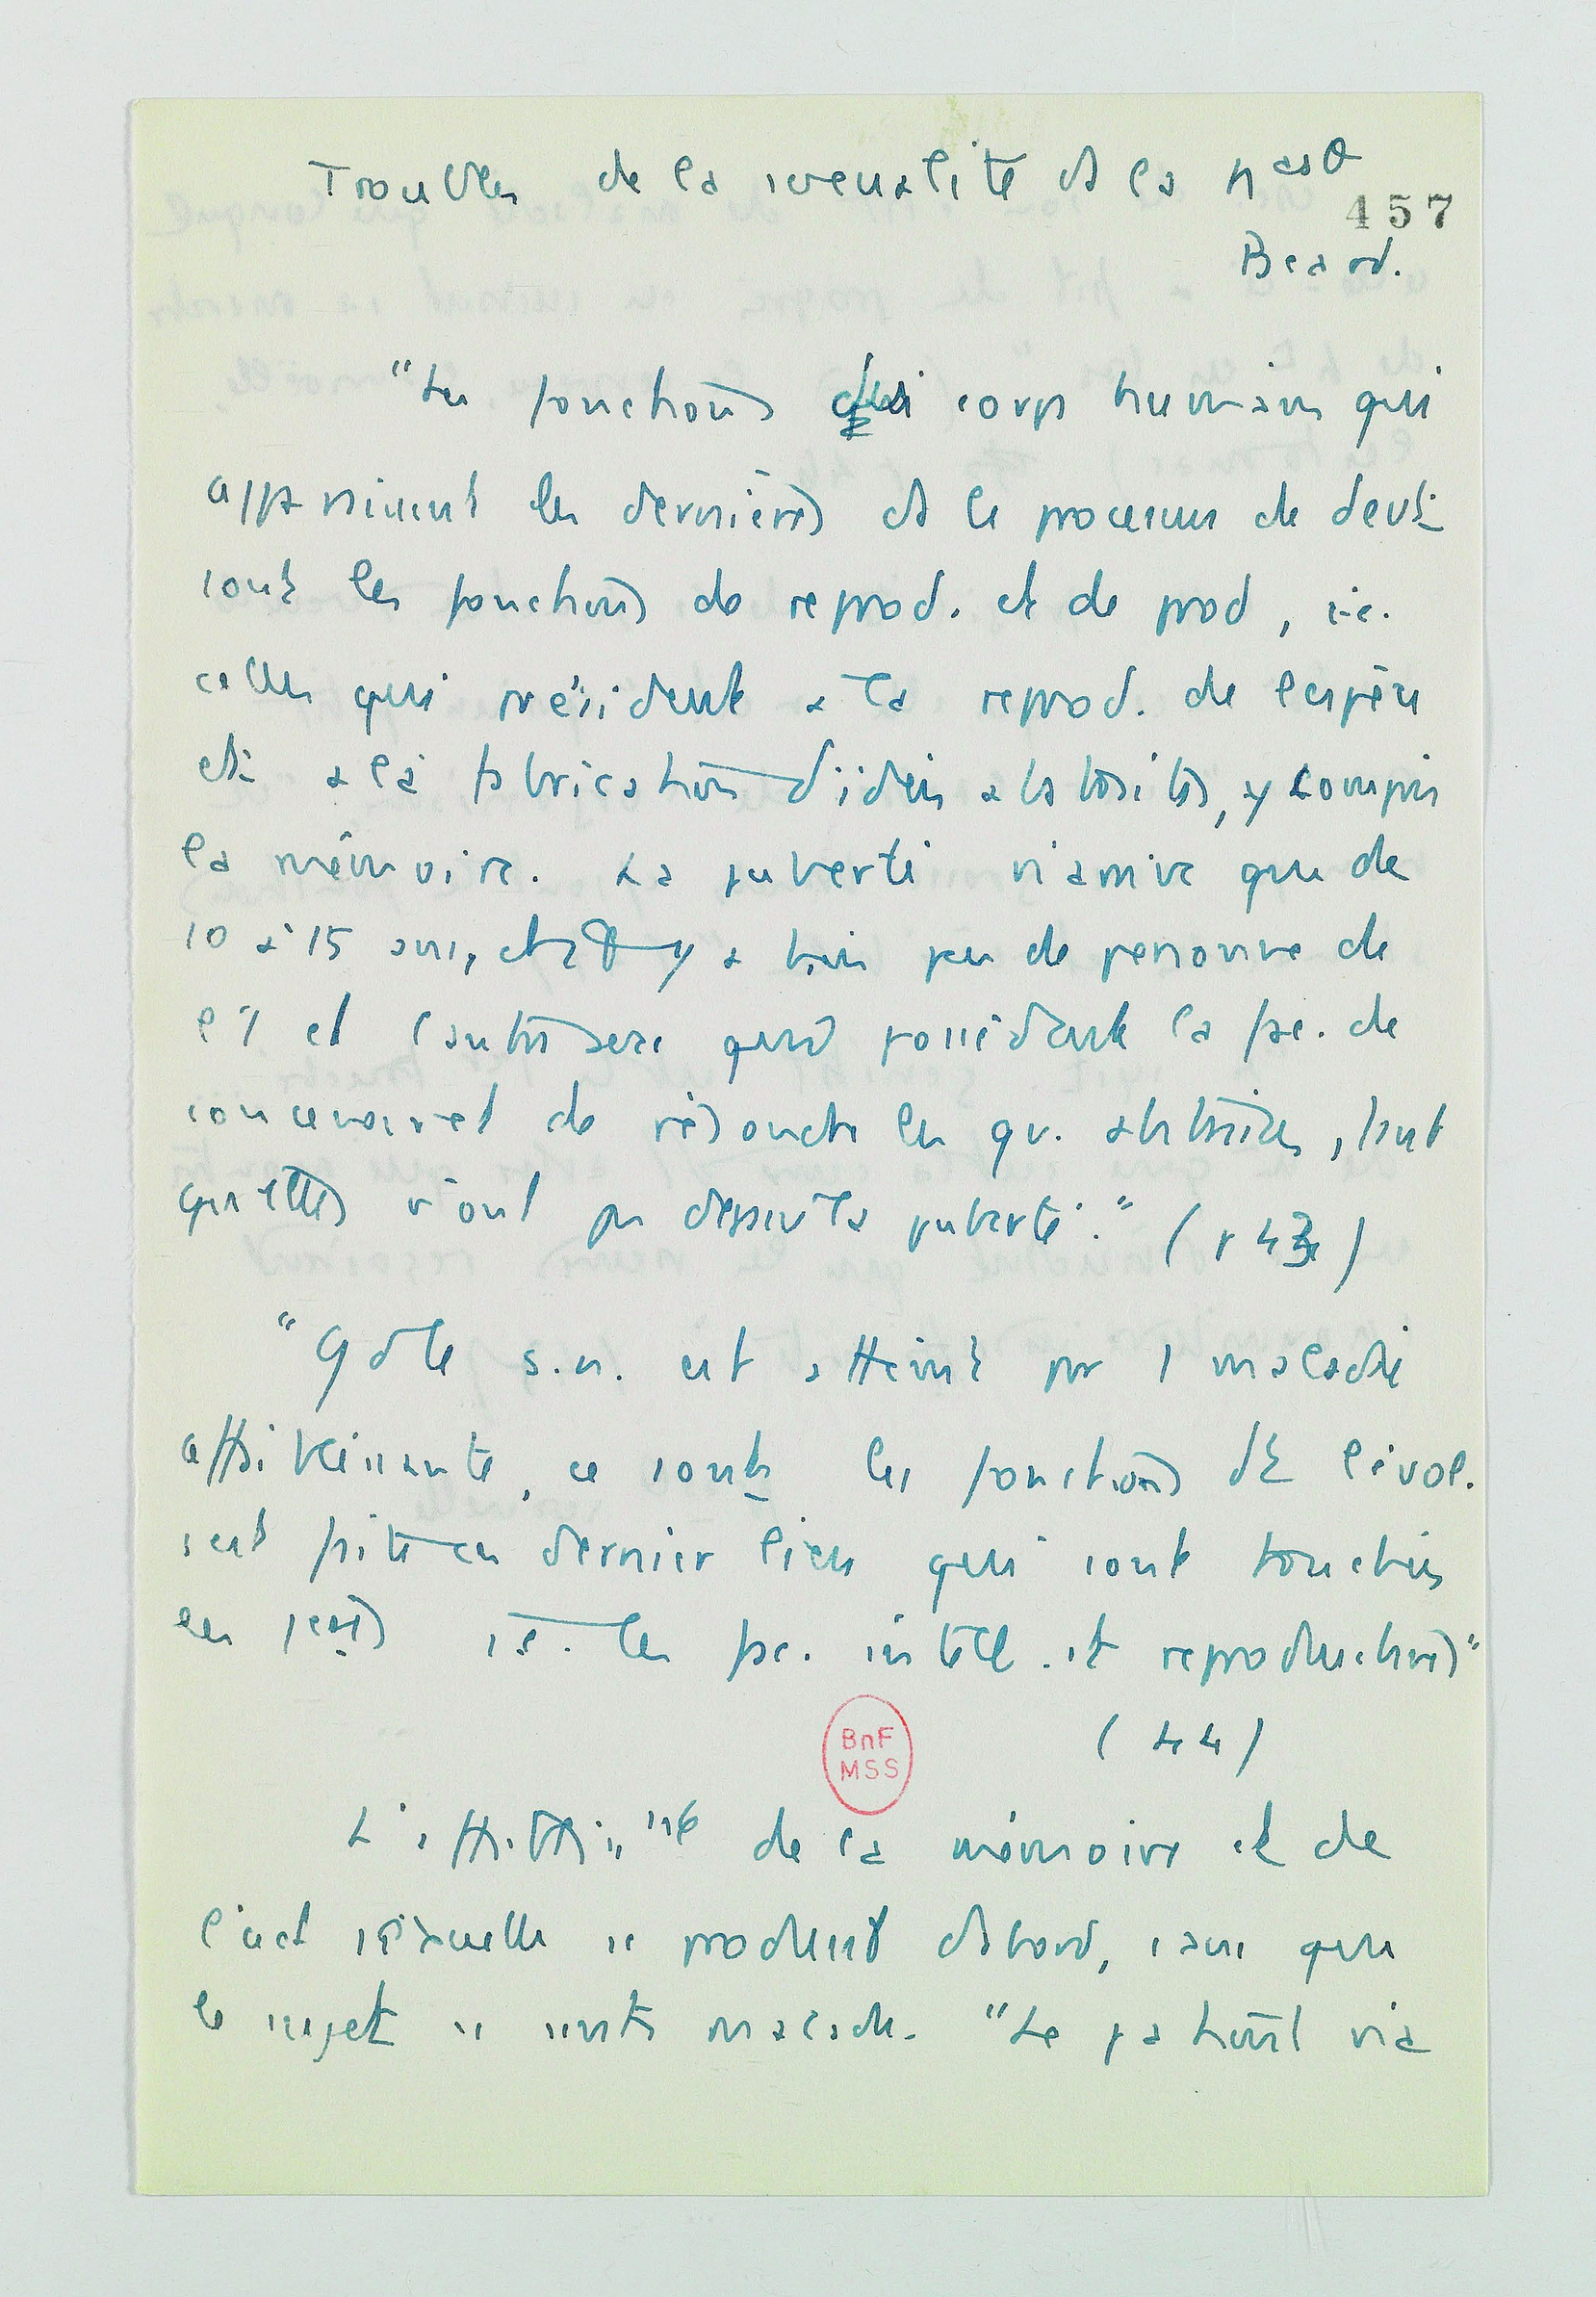 Troubles de la sexualité ds la nasth
457
Beard.
"Les fonctions du corps humain qui
apparaissent les dernières ds le processus de devt
sont les fonctions de reprod. et de prod, i.e.
celles qui président à la reprod. de l'espèce
et à la fabrication d'idées abstraites, y compris
la mémoire. La puberté n'arrive que de
10 à 15 ans, et il y a bien peu de personne de
l'1 et l'autre sexe qui possèdent la fac. de
concevoir et de résoudre les qu. abstraites, tant
qu'elles n'ont pas dépassé la puberté." (p 43)
"Qd le s.n. est atteint par 1 maladie
affaiblissante, ce sont les fonctions dt l'évol.
s'est faite en dernier lieu qui sont touchées
les 1ères i.e. les fac. intell. et reproductives"
(44)
L'affaiblisst de la mémoire et de
l'act sexuelle se produit d'abord, sans que
le sujet se sente malade. "Le patient n'a
BnF
MSS